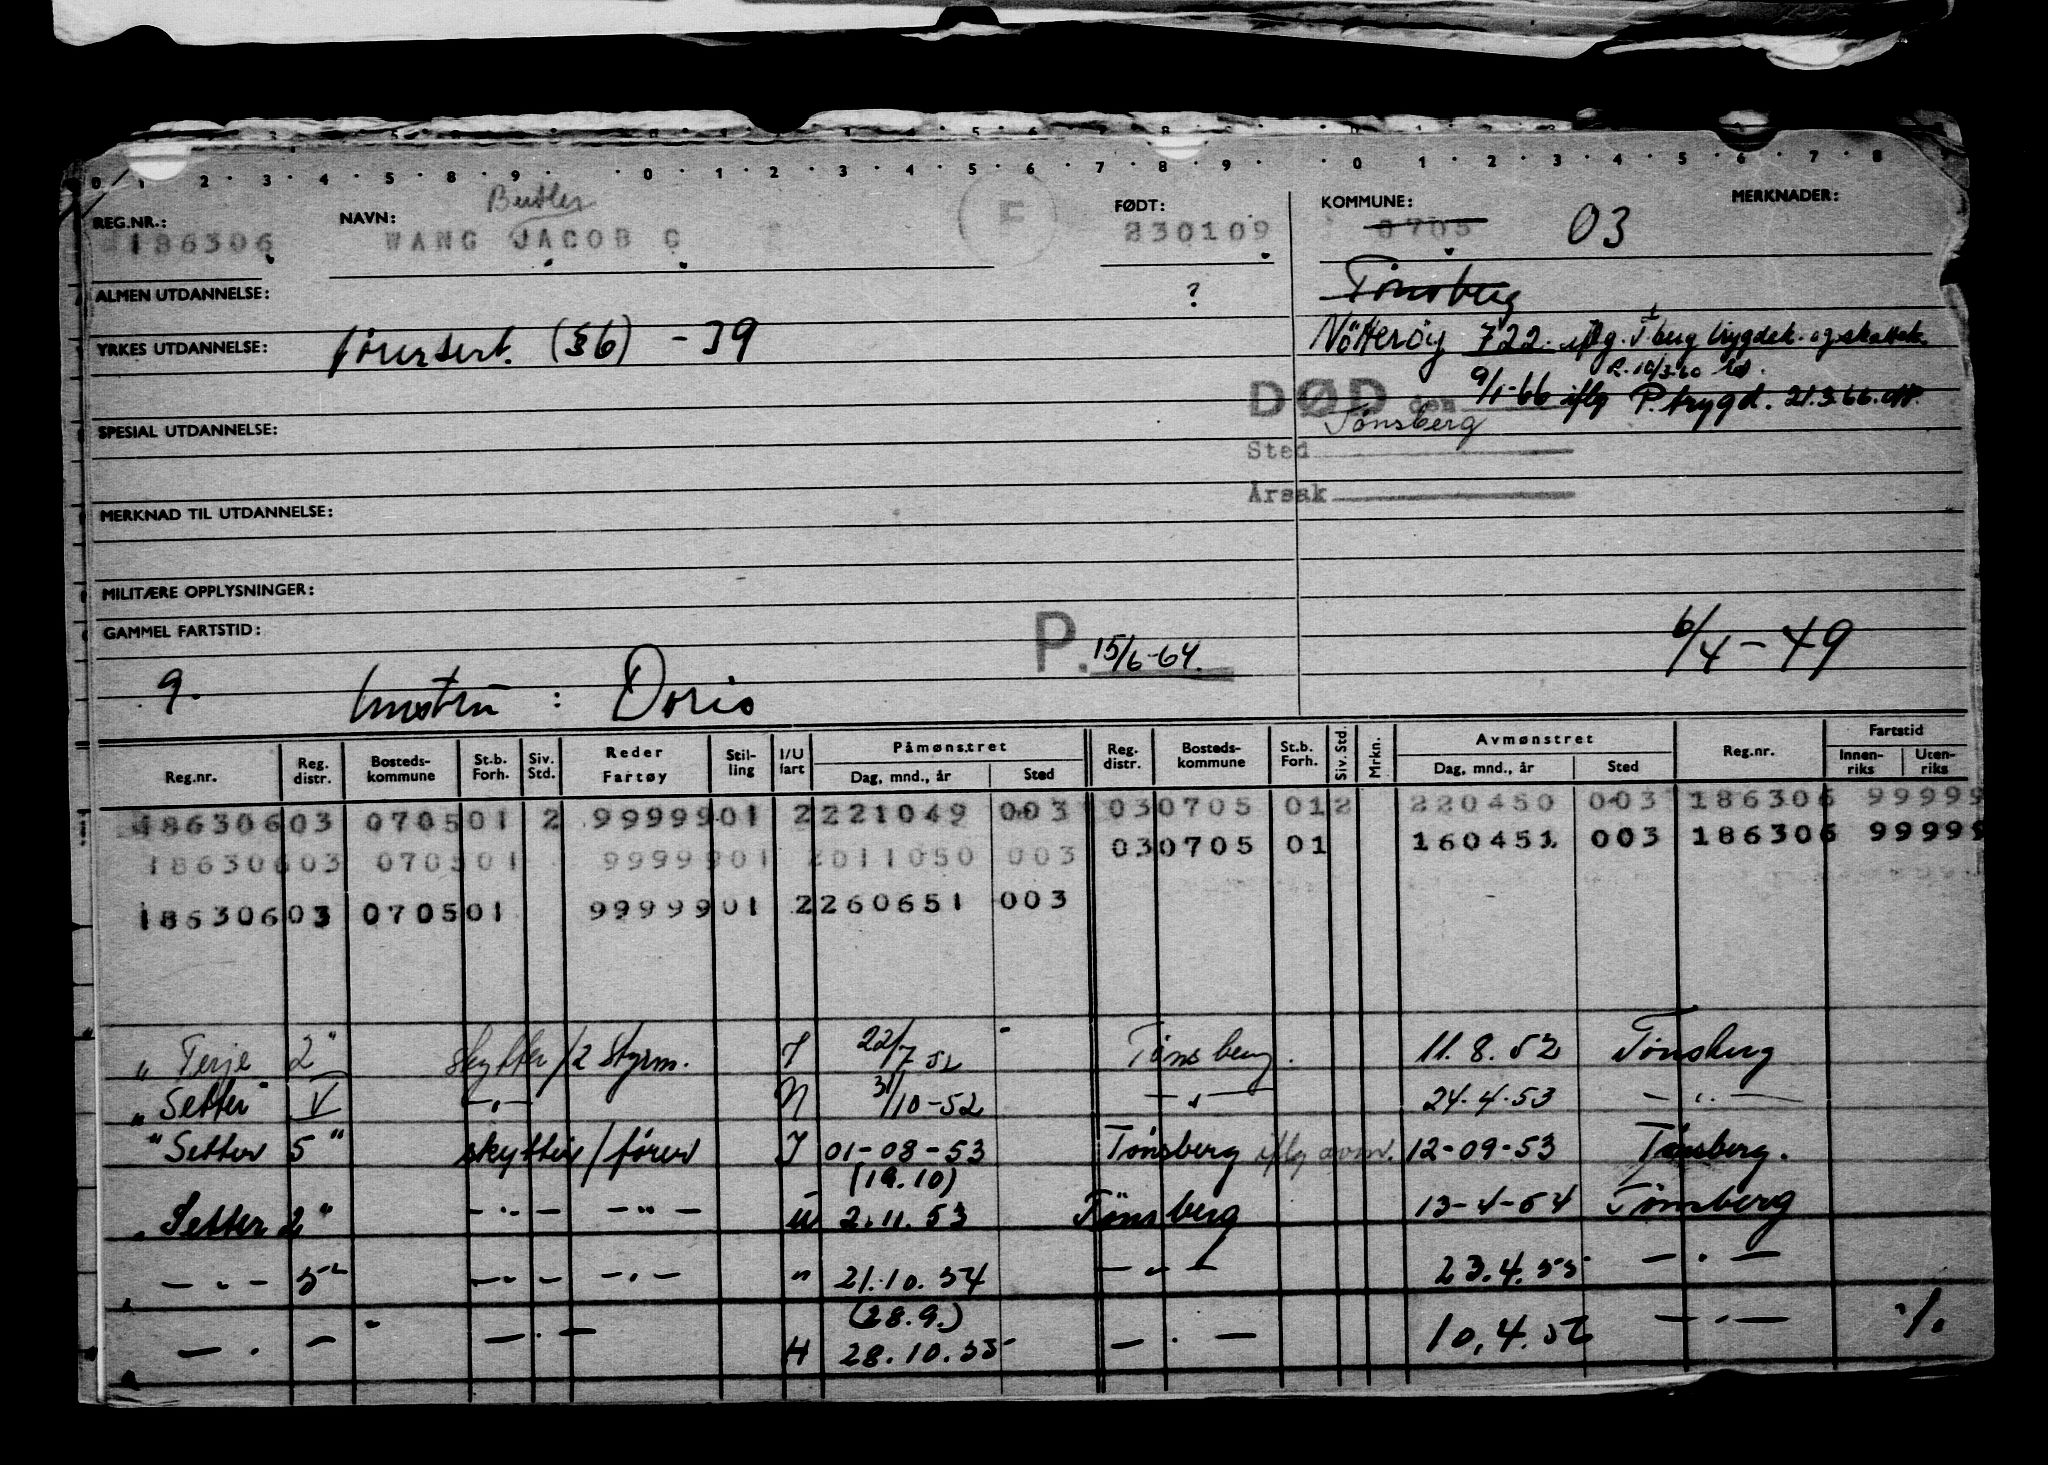 0 1 2 3 4 5 8 9 0 1 2 3 4 5 6 7 8 9 0 1 2 3 4 5 6 7 8
REG.NR.: 186306 NAVN: WANG JACOB C F FØDT: 230109 KOMMUNE: 0705 03 MERKNADER:
ALMEN UTDANNELSE: ? Tönsberg
YRKES UTDANNELSE: førersert. (§6) - 39 Nötteröy 722. iflg. T.berg trygdek. og skattek.
R. 10/3-60
DØD den 9/1-66 iflg P.trygd. 21.3.66.
SPESIAL UTDANNELSE: Tönsberg
Sted
Årsak
MERKNAD TIL UTDANNELSE:
MILITÆRE OPPLYSNINGER:
GAMMEL FARTSTID: P. 15/6-64. 6/4-49
g. hustru : Doris
Reg.nr. Reg. distr. Bosteds-kommune St.b. Forh. Siv. Std. Reder Fartøy Stil-ling I/U fart Påmønstret Dag, mnd., år Sted Reg. distr. Bosteds-kommune St.b. Forh. Siv. Std. Mrkn. Avmønstret Dag, mnd., år Sted Reg.nr. Fartstid Innen-riks Uten-riks
186306 03 0705 01 2 99999 01 2 221049 003 03 0705 01 2 220450 003 186306 99999
186306 03 0705 01 99999 01 2 011050 003 03 0705 01 160451 003 186306 99999
186306 03 0705 01 99999 01 2 260651 003
"Terje 2" skytter/2 styrm. I 22/7 52 Tönsberg. 11.8.52 Tönsberg
"Setter V -"- N 31/10-52 -"- 24.4.53 -"-
"Setter 5" skytter/fører I 01-08-53 Tönsberg iflg avm. 12-09-53 Tønsberg.
(19.10)
"Setter 2" -"- -"- U 2.11.53 Tönsberg 13-4-54 Tönsberg
-"- 5" -"- -"- " 21.10.54 -"- 23.4.55 -"-
(28.9.)
-"- - -"- H 28.10.55 -"- 10.4.56 -"- ./.